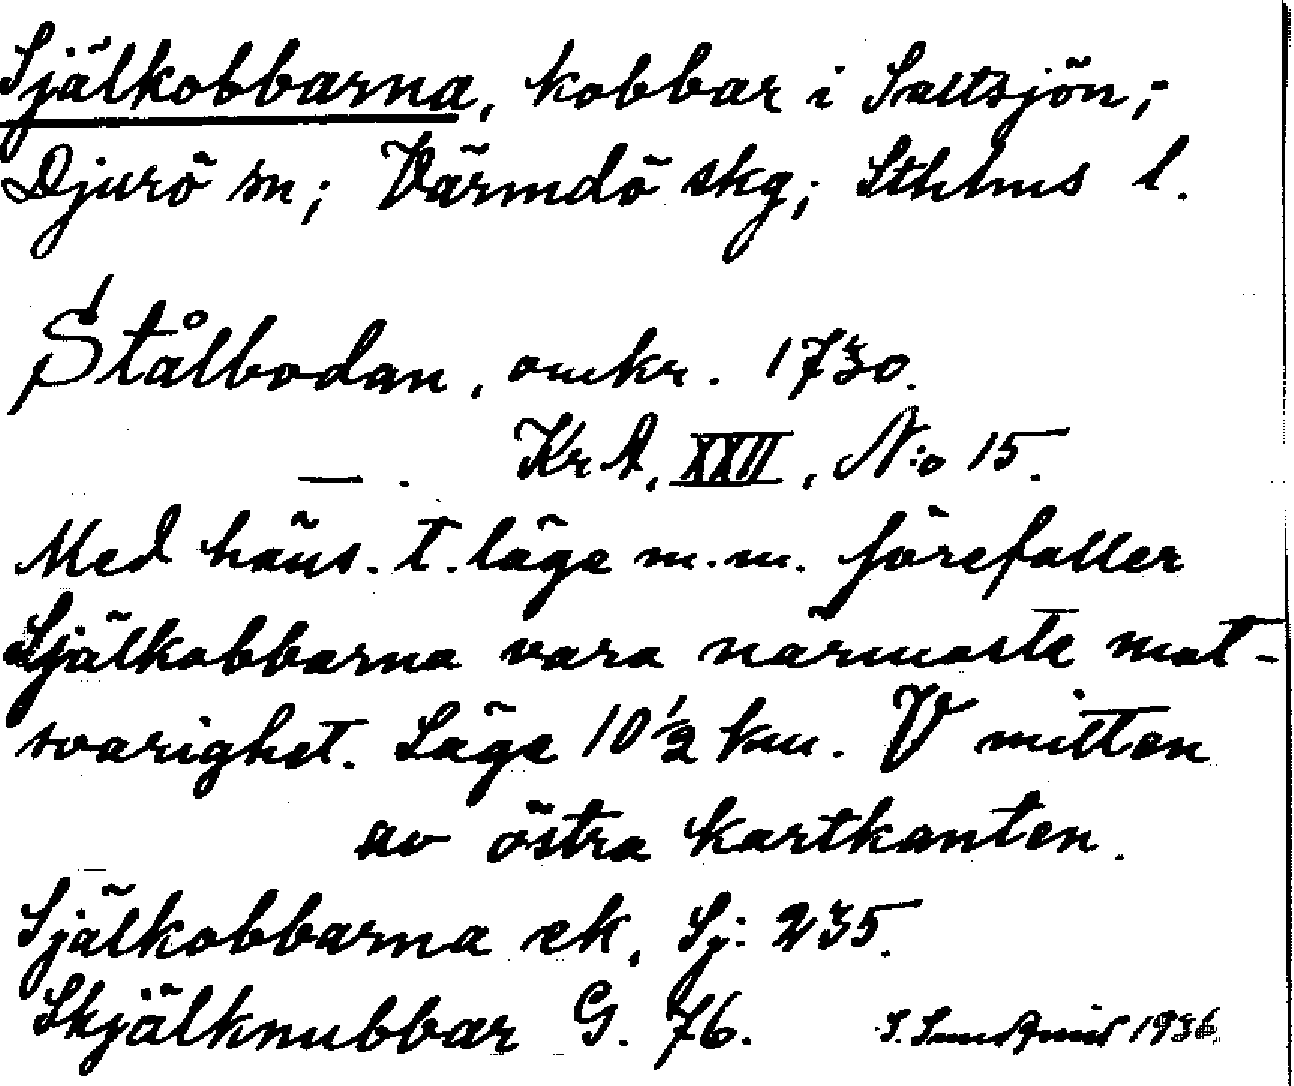 Själkobbarna, kobbar i Saltsjön;
Djurö sn; Värmdö skg; Sthlms l.
Stålbodan, omkr. 1730.
— . KrA, XXII, N:o 15.
Med häns. t. läge m.m. förefaller
Själkobbarna vara närmaste mot-
svarighet. Läge 10 1/2 km. V mitten
av östra kartkanten.
Själkobbarna ek, Sj: 235.
Skjälknubbar G. 76.
1936